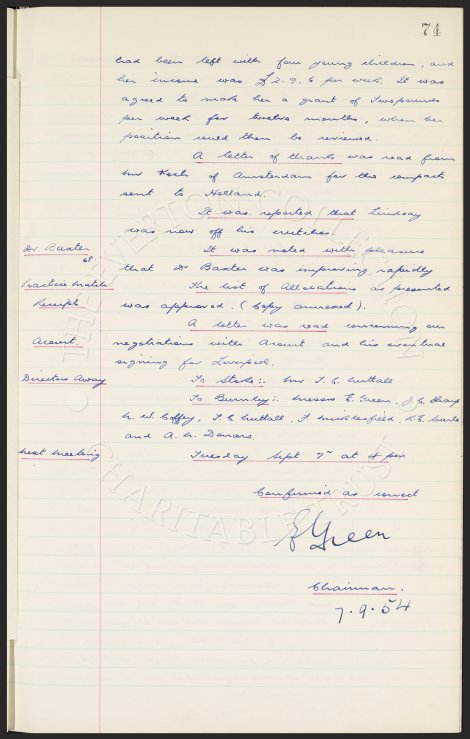 74
had been left with four young children, and
her income was £2.9.6 per week. It was
agreed to make her a grant of Two pounds
per week for twelve months, when her
position could then be reviewed.
A letter of thanks was read from
Mr of Amsterdam for the compacts
sent to Holland.
It was reported that Lindsay
was now off his crutches.
Dr Baxter
It was noted with pleasure
that Dr Baxter was improving rapidly
Practice Match
The list of Allocations as presented
Receipts
was approved. (Copy annexed).
A letter was read concerning our
A'Court
negotiations with A'Court and his eventual
signing for Liverpool.
Directors Away
To Stoke:- Mr T. C. Nuttall
To Burnley:- Messrs E. Green, J. C. Sharp
N. W. Coffey, T. C. Nuttall, F. Micklesfield, R. E. Searle
and A. H. Denaro.
Next Meeting
Tuesday Sept 7th at 4 pm
Confirmed as correct
E Green
Chairman.
7.9.54
THE EVERTON COLLECTION
CHARITABLE TRUST